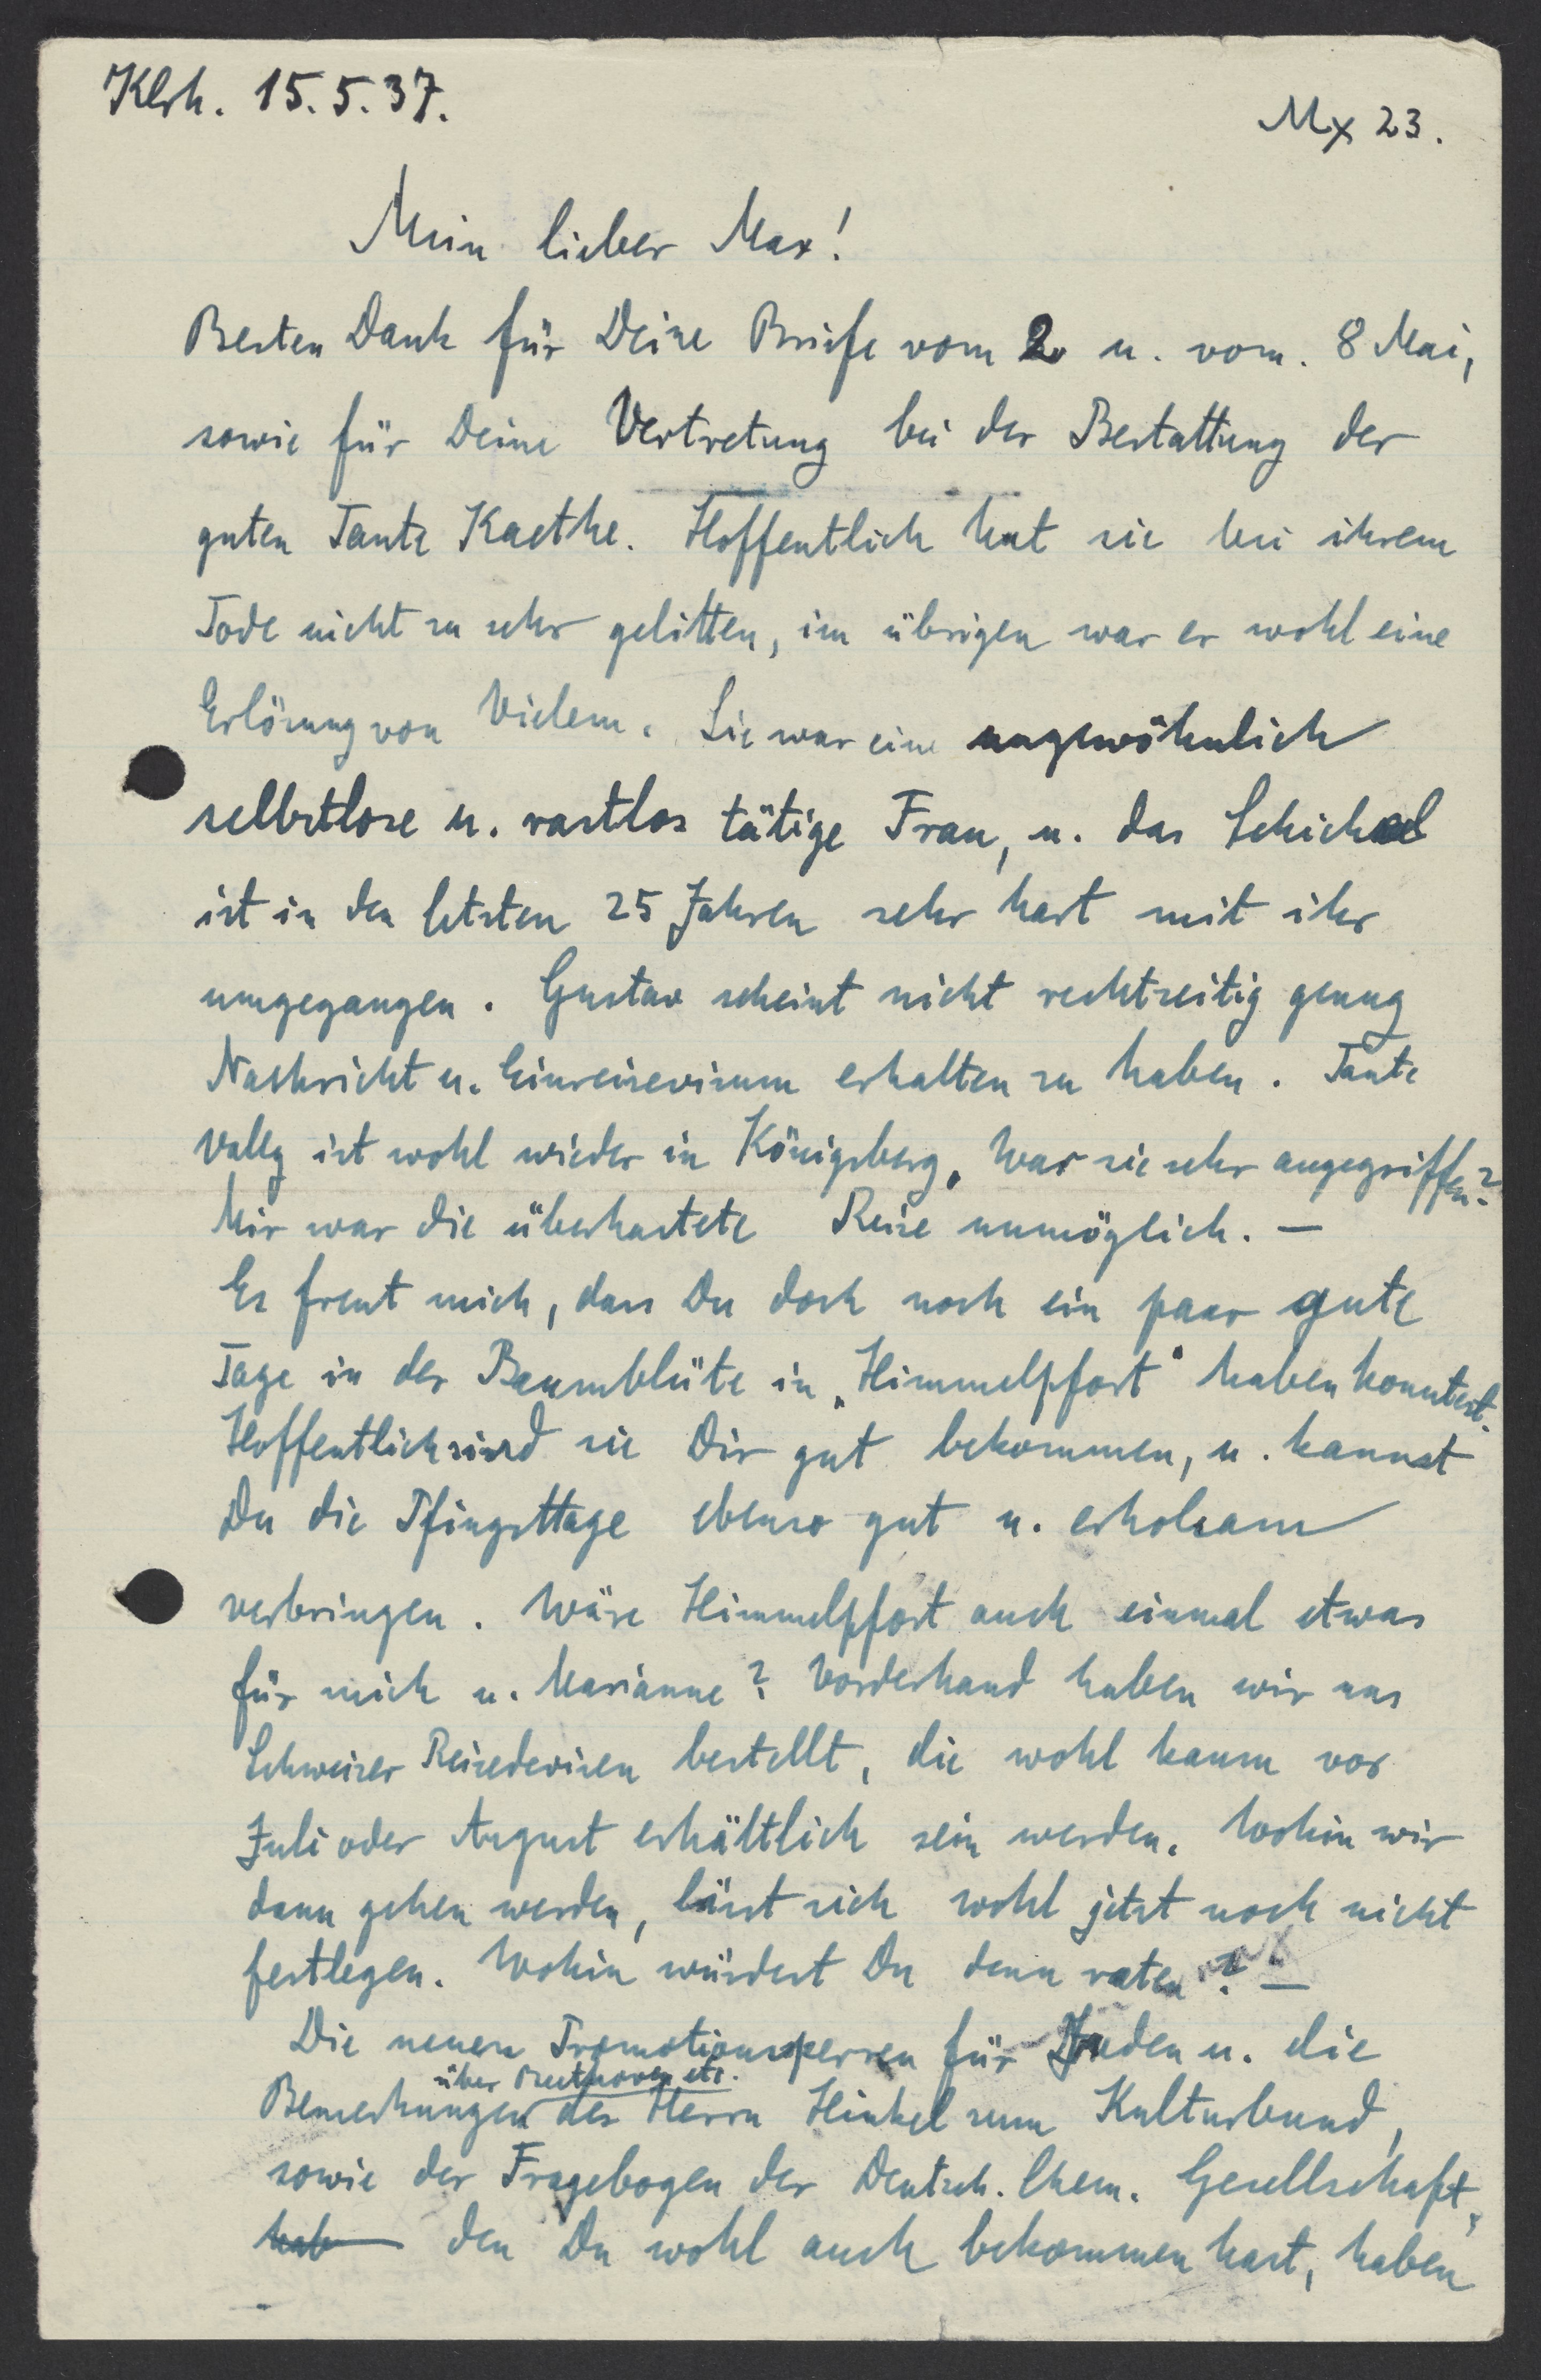 Klrh. 15.5.37.
Mx 23.
Mein lieber Max!
Besten Dank für Deine Briefe vom 2. u. vom. 8 Mai,
sowie für Deine Vertretung bei der Bestattung der
guten Tante Kaethe. Hoffentlich hat sie bei ihrem
Tode nicht zu sehr gelitten, im übrigen war er wohl eine
Erlösung von Vielem. Sie war eine ungewöhnlich
selbstlose u. rastlos tätige Frau, u. das Schicksal
ist in den letzten 25 Jahren sehr hart mit ihr
umgegangen. Gustav scheint nicht rechtzeitig genug
Nachricht u. Einreisevisum erhalten zu haben. Tante
Vally ist wohl wieder in Königsberg, War sie sehr angegriffen?
Mir war die überhastete Reise unmöglich. —
Es freut mich, dass Du doch noch ein paar gute
Tage in der Baumblüte in „Himmelpfort“ haben konntest.
Hoffentlich sind sie Dir gut bekommen, u. kannst
Du die Pfingsttage ebenso gut u. erholsam
verbringen. Wäre Himmelpfort auch einmal etwas
für mich u. Marianne? Vorderhand haben wir uns
Schweizer Reisedevisen bestellt, die wohl kaum vor
Juli oder August erhältlich sein werden. Wohin wir
dann gehen werden, lässt sich wohl jetzt noch nicht
festlegen. Wohin würdest Du denn raten? —
Die neuen Promotionssperren für Juden u. die
über Beethoven etc.
Bemerkungen des Herrn Hinkel zum Kulturbund,
sowie der Fragebogen der Deutsch. Chem. Gesellschaft,
hab den Du wohl auch bekommen hast, haben